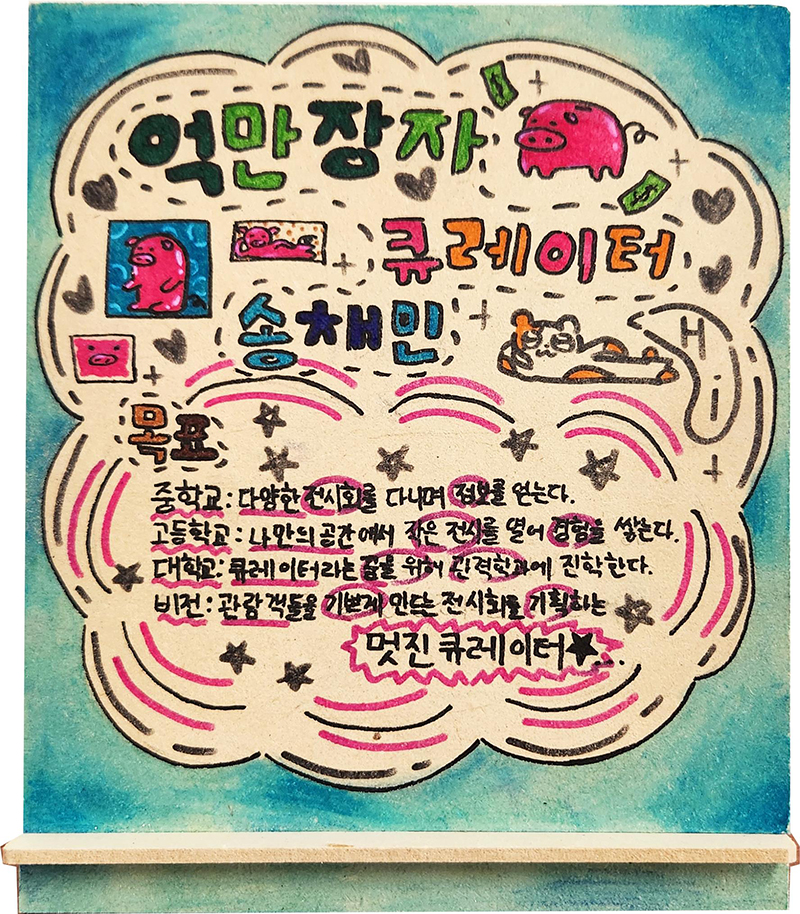 억만장자
큐레이터
송채민
Hi
목표
중학교: 다양한 전시회를 다니며 정보를 얻는다.
고등학교: 나만의 공간에서 작은 전시를 열어 경험을 쌓는다.
대학교: 큐레이터라는 꿈을 위해 관련학과에 진학한다.
비전: 관람객들을 기쁘게 만드는 전시회를 기획하는
멋진 큐레이터★...